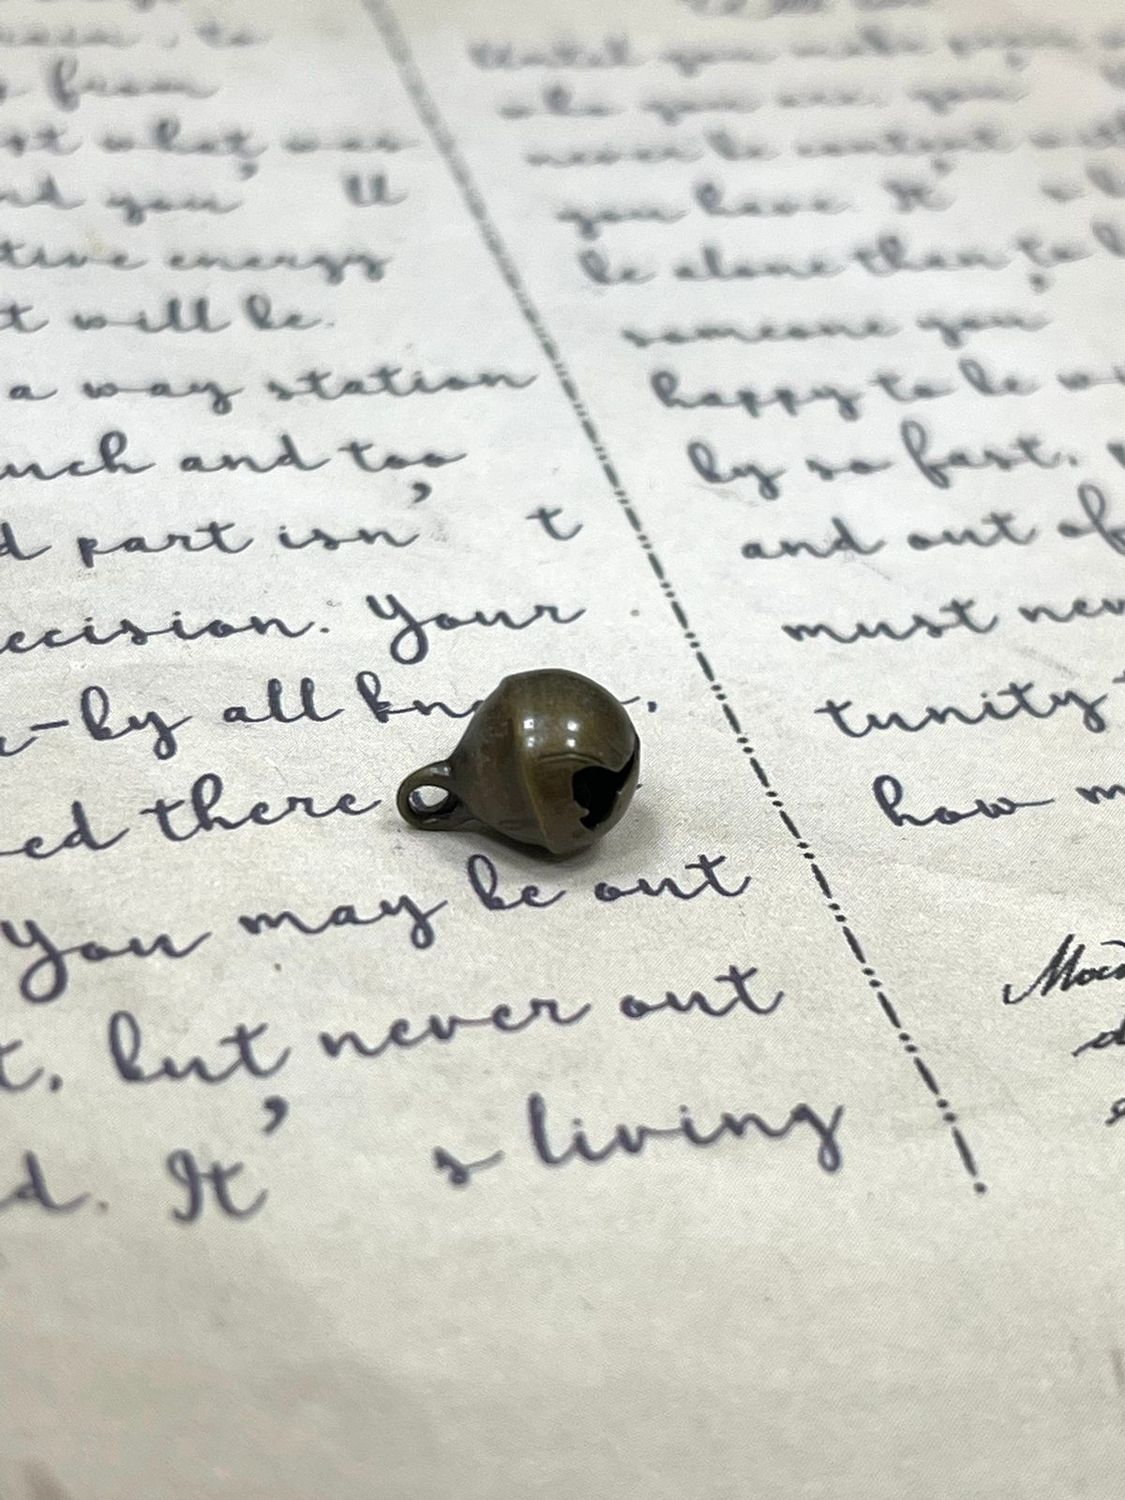 from
st what was
nd you' ll
tive energy
t will be.
a way station
uch and too
d part isn' t
ecision. Your
-by all
ed there
You may be out
t, but never out
d. It' s living
Until you make
who you are, you
never be content
you have. It'
be alone than to b
someone you'
happy to be wi
by so fast,
and out of
must nev
tunity t
how m